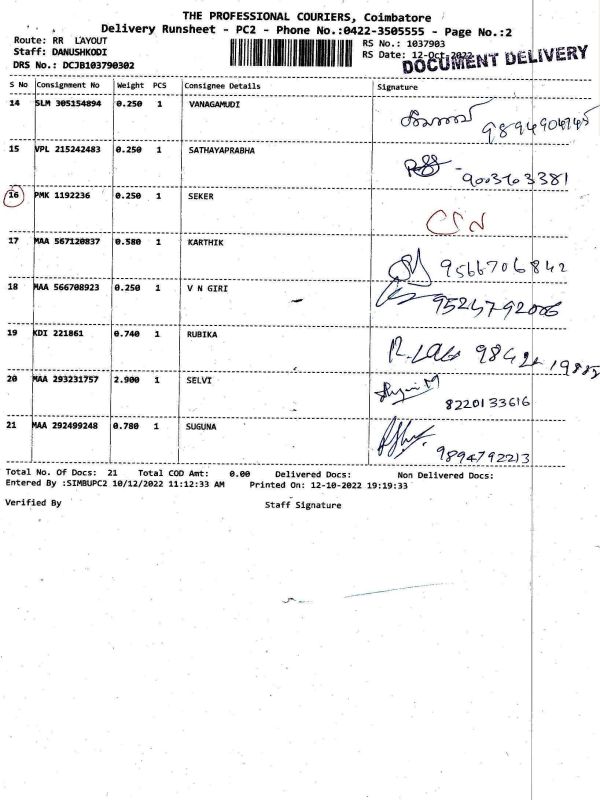 THE PROFESSIONAL COURIERS, Coimbatore
Delivery Runsheet - PC2 - Phone No.:0422-3505555 - Page No.:2
Route: RR LAYOUT
Staff: DANUSHKODI
DRS No.: DCJB103790302
RS No.: 1037903
RS Date: 12-Oct-2022
DOCUMENT DELIVERY
S No Consignment No Weight PCS Consignee Details Signature
14 SLM 305154894 0.250 1 VANAGAMUDI
15 VPL 215242483 0.250 1 SATHAYAPRABHA 9003703381
16 PMK 1192236 0.250 1 SEKER
17 MAA 567120837 0.580 1 KARTHIK 9566706842
18 MAA 566708923 0.250 1 V N GIRI
19 KDI 221861 0.740 1 RUBIKA
20 MAA 293231757 2.900 1 SELVI 8220133616
21 MAA 292499248 0.780 1 SUGUNA 9894792213
Total No. Of Docs: 21 Total COD Amt: 0.00 Delivered Docs: Non Delivered Docs:
Entered By :SIMBUPC2 10/12/2022 11:12:33 AM Printed On: 12-10-2022 19:19:33
Verified By Staff Signature